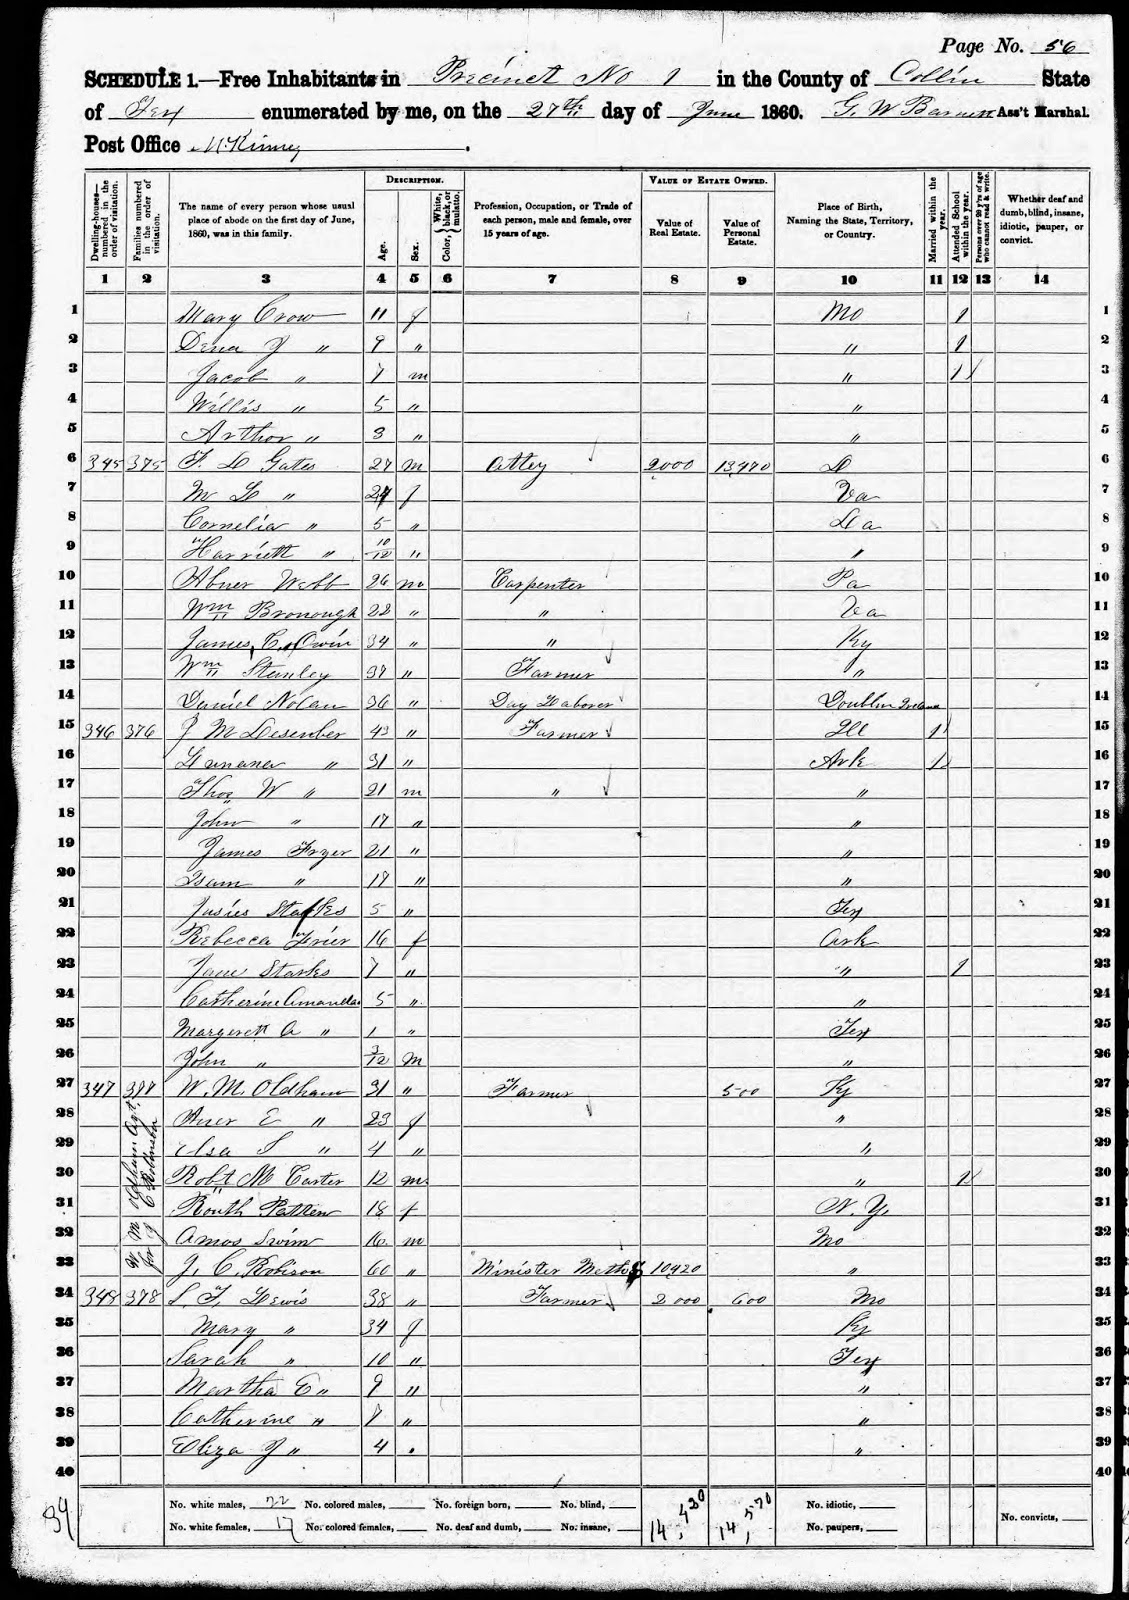 Page No. 56
SCHEDULE 1.—Free Inhabitants in Precinct No 1 in the County of Collin State
of Tex enumerated by me, on the 27th day of June 1860. G. W Barnett Ass't Marshal.
Post Office McKinney.
Dwelling-houses—numbered in the order of visitation.
Families numbered in the order of visitation.
The name of every person whose usual place of abode on the first day of June, 1860, was in this family.
DESCRIPTION.
Age.
Sex.
Color, White, black, or mulatto.
Profession, Occupation, or Trade of each person, male and female, over 15 years of age.
VALUE OF ESTATE OWNED.
Value of Real Estate.
Value of Personal Estate.
Place of Birth, Naming the State, Territory, or Country.
Married within the year.
Attended School within the year.
Persons over 20 y'rs of age who cannot read & write.
Whether deaf and dumb, blind, insane, idiotic, pauper, or convict.
1 2 3 4 5 6 7 8 9 10 11 12 13 14
1 Mary Crow 11 f Mo 1 1
2 Dena J " 9 " " 1 2
3 Jacob " 7 m " 1 / 3
4 Willis " 5 " " 4
5 Arthor " 3 " " 5
6 345 375 F. D Gates 27 m Attey 2000 13,970 6
7 M L " 24 f Va 7
8 Cornelia " 5 " La 8
9 Harriett " 10/12 " " 9
10 Abner Webb 26 m Carpenter Pa 10
11 Wm Bronough 22 " " Va 11
12 James C. Owin 34 " " Ky 12
13 Wm Stanley 37 " Farmer " 13
14 Daniel Nolan 36 " Day Laborer Doublin Ireland 14
15 346 376 J M Desenber 43 " Farmer Ill 1 15
16 " 31 " Ark 1 16
17 Thos W " 21 m " " 17
18 John " 17 " " 18
19 James Fryer 21 " " 19
20 Isam " 17 " " 20
21 Starks 5 " Tex 21
22 Rebecca Frier 16 f Ark 22
23 Jane Starks 7 " " 1 23
24 Catherine Amanda 5 " " 24
25 Margerett A " 1 " Tex 25
26 John " 3/12 M " 26
27 347 377 W. M. Oldham 31 " Farmer 500 Ky 27
28 E " 23 f " 28
29 Asa S " 4 " " 29
30 Robt M Carter 12 m. " 1 30
31 Routh Patten 18 f N. Y. 31
32 Amos Swim 16. m Mo 32
W M Oldham Agt. for J C Robinson
33 J. C. Robison 60 " Minister Meth 10420 " 33
34 348 378 S. F. Lewis 38 " Farmer 2000 600 Mo 34
35 Mary " 34 f Ky 35
36 Sarah " 10 " Tex 36
37 Martha E " 9 " " 37
38 Catherine " 7 " " 38
39 Eliza J " 4 " " 39
40 40
No. white males, 22 No. colored males, No. foreign born, No. blind, 14,420 14,570 No. idiotic,
No. white females, 17 No. colored females, No. deaf and dumb, No. insane, No. paupers, No. convicts,
34